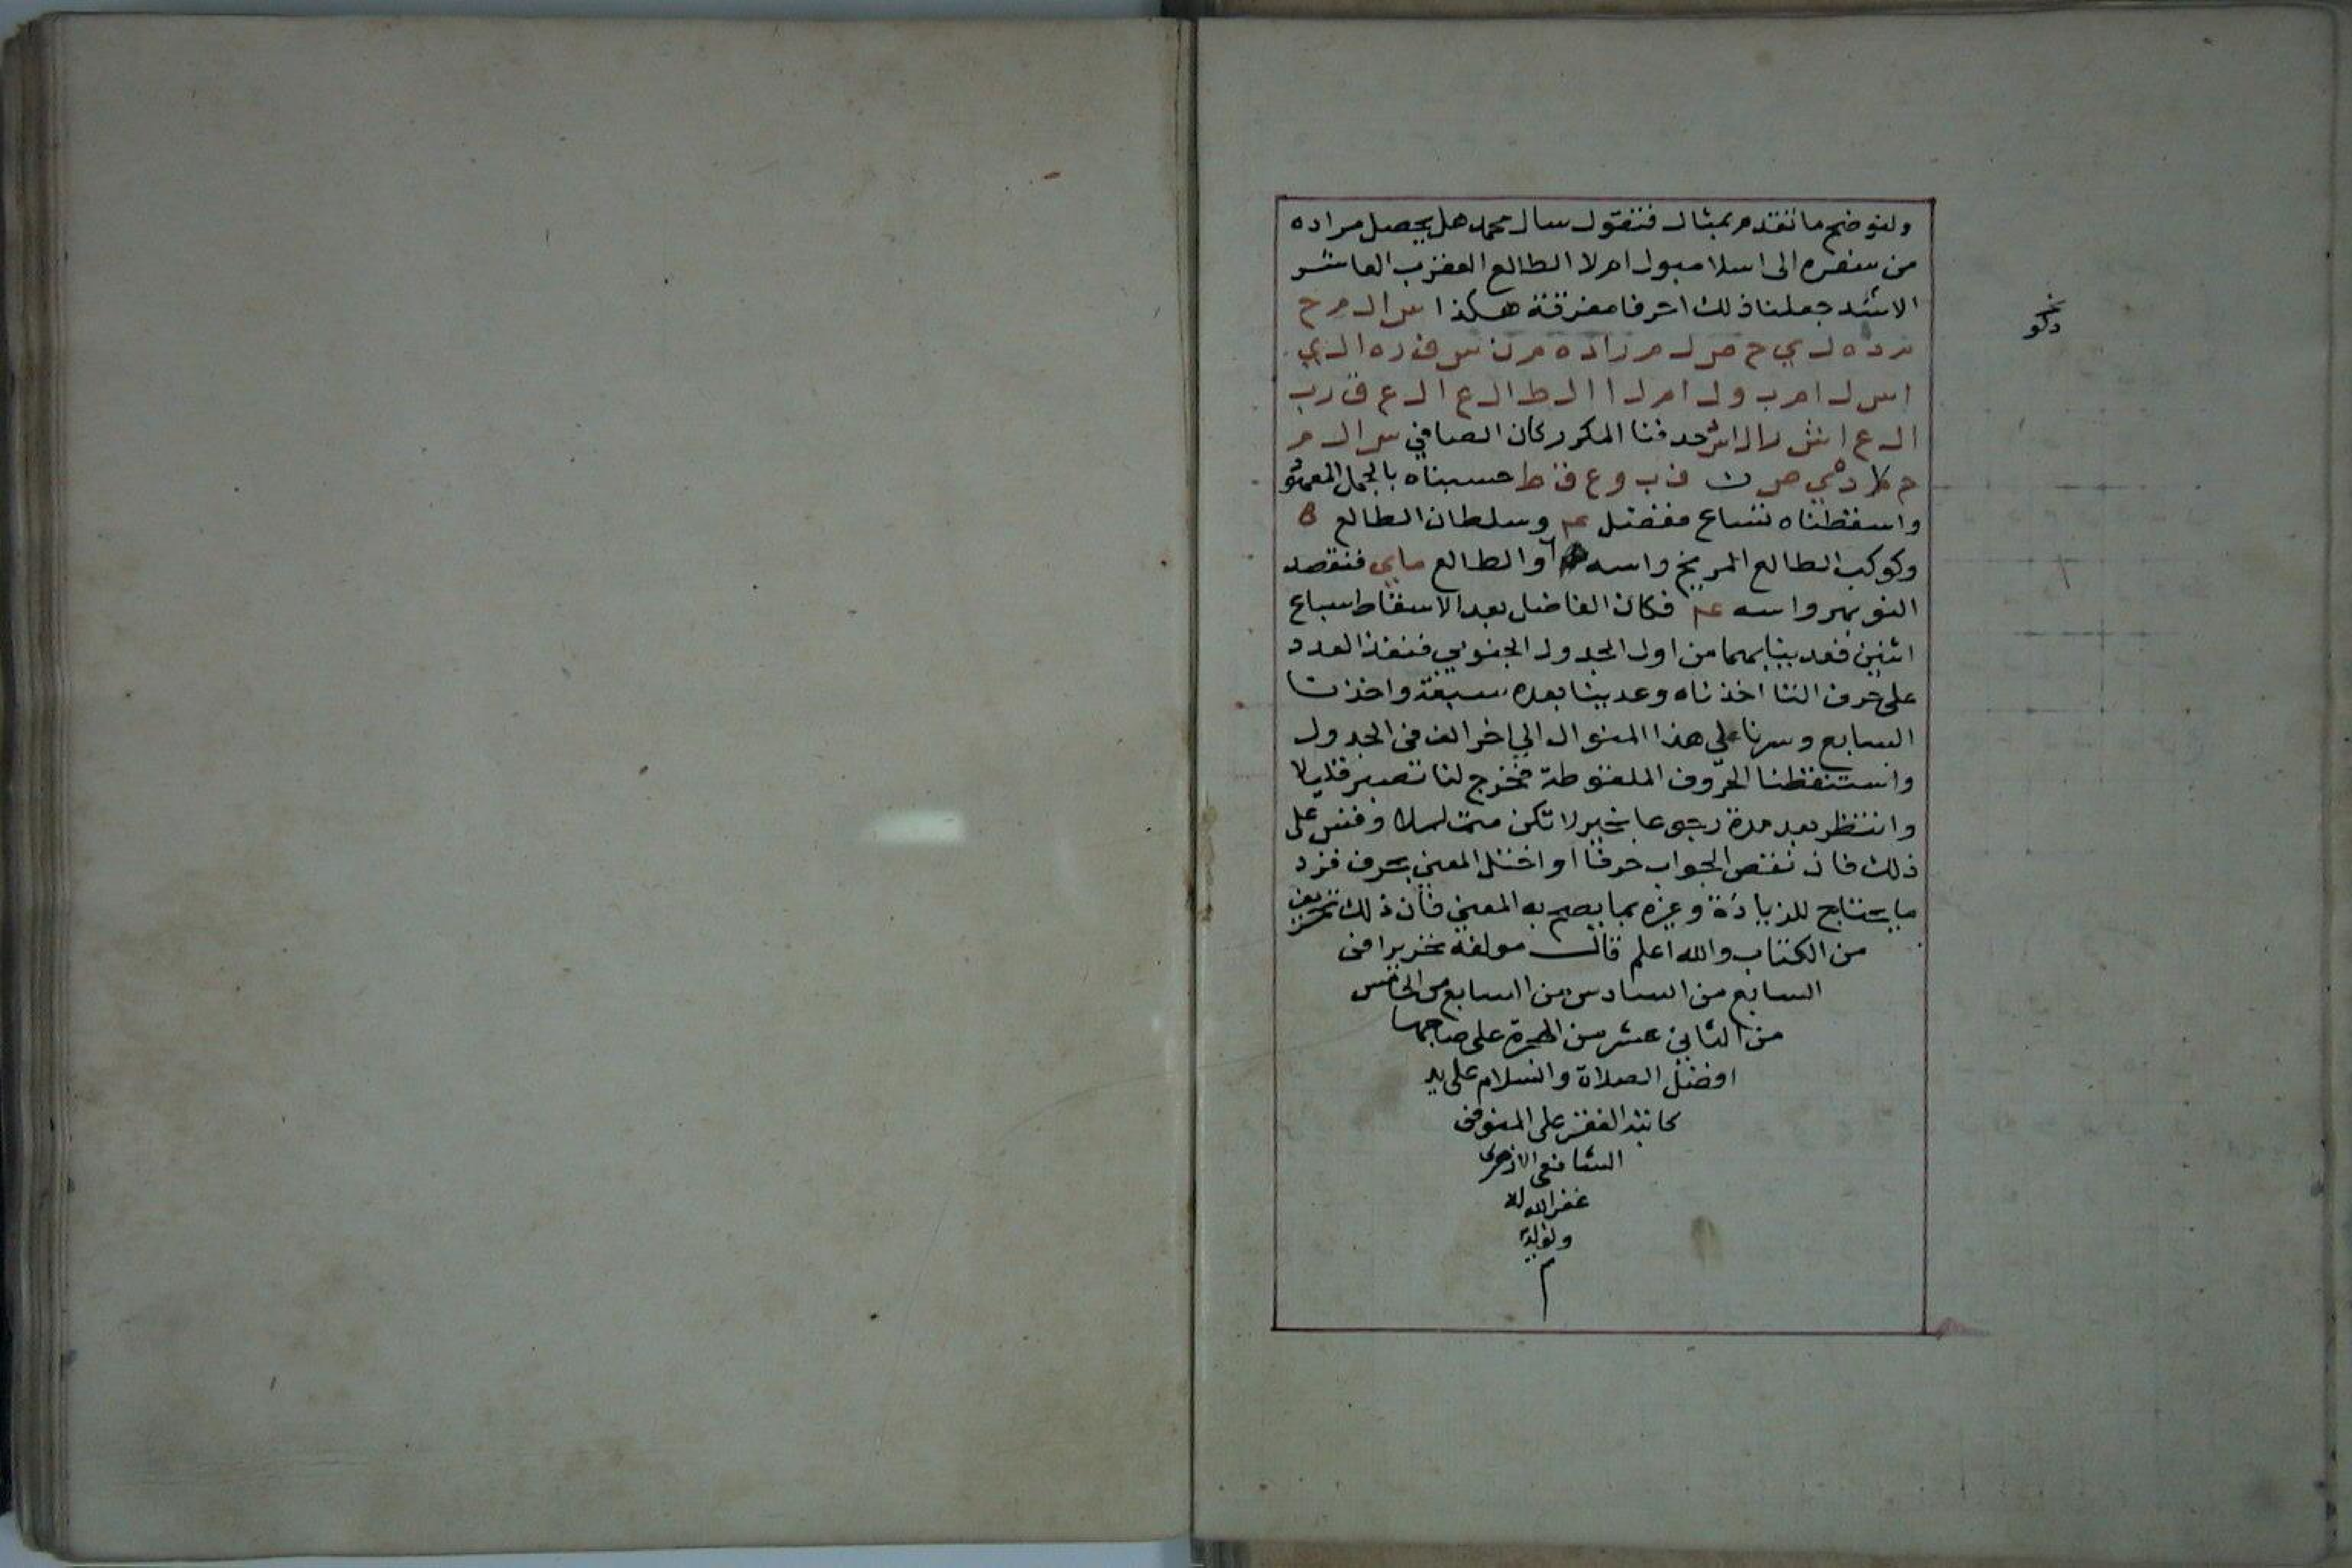 ولنوضح ما تقدم بمثال فنقول سال محمد هل يحصل مراده
من سفره الى اسلامبول ام لا الطالع العقرب العاشر
الاسد جعلنا ذلك احرفا مفرقة هكذا اس ا ل م ح
م د ه ل ي ح ص ل م ر ا د ه م ن س ف ر ه ا ل ي
ا س ل ا م ب و ل ا م ل ا ا ل ط ا ل ع ا ل ع ق ر ب
ا ل ع ا ش ر ا ل ا س د حذفنا المكرر كان الصافي س ا ل م
ح د ه ي ص ر ن ف ب و ع ق ط حسبناه بالجمل
واسقطناه تساع ففضل وسلطان الطالع
وكوكب الطالع المريخ واسه والطالع فنقصد
النوبهر واسه فكان الفاضل بعد الاسقاط سباع
اثنين فعدينا بهما من اول الجدول الجنوبي فنفذ العدد
على حرف التا اخذناه وعدينا بعده سبعة واخذنا
السابع وسرنا على هذا المنوال الي اخر الف في الجدول
واستنطقنا الحروف الملقوطة فخرج لنا تصبر قليلا
وانتظر بعد مدة رجوعا بخير لا تكن وقس على
ذلك فان نقص الجواب حرفا او اختل المعني بحرف فزد
ما يحتاج للزيادة وغيره بما يصح به المعني فان ذلك تحريف
من الكتاب والله اعلم قال مولفه تحريرا في
السابع من السادس من السابع من الخامس
من الثاني عشر من الهجرة على صاحبها
افضل الصلاة والسلام على يد
كاتبه الفقير على المنوفى
الشافعي الازهرى
غفر الله له
ولوالديه
م